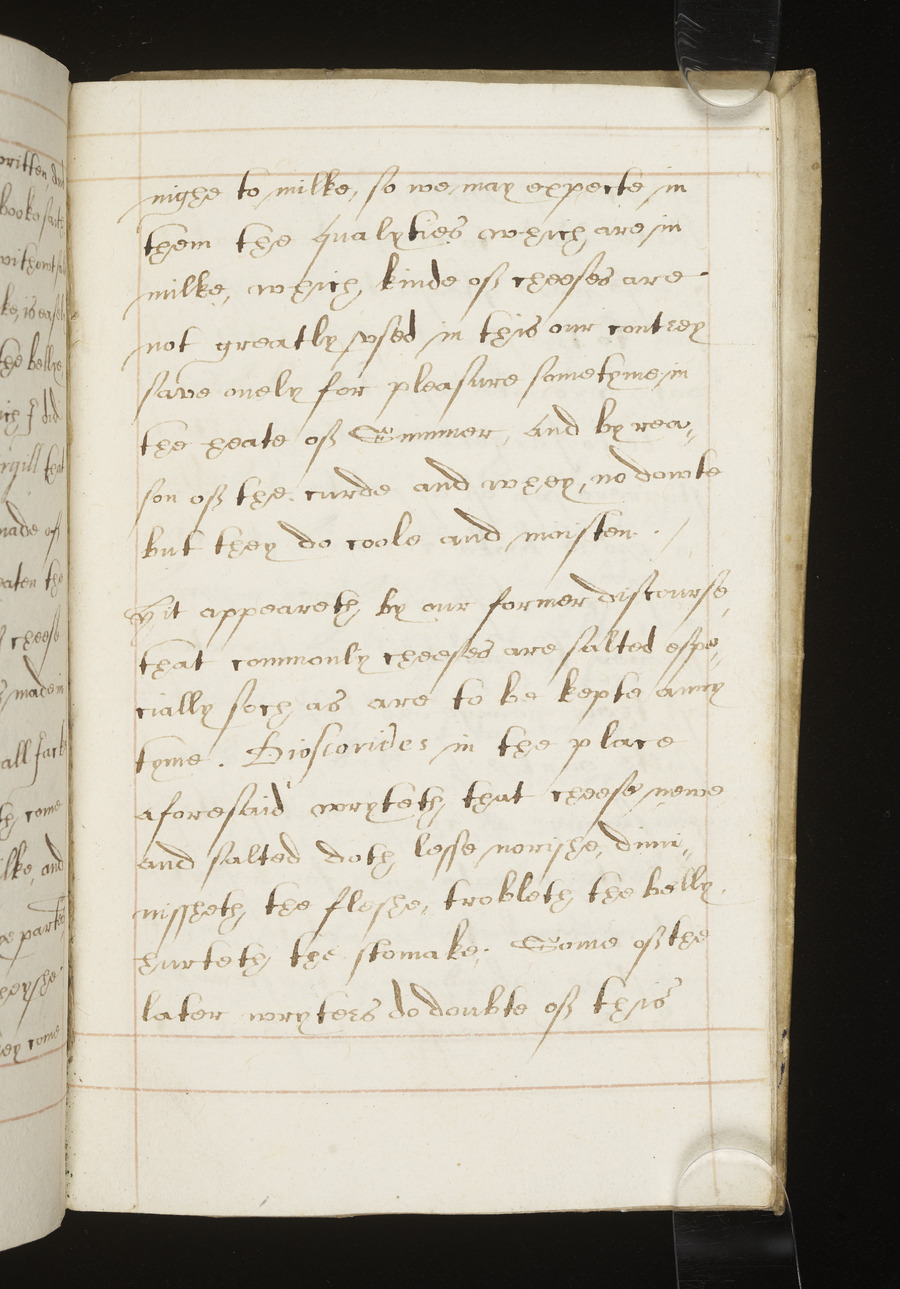 nighe to milke, so we may expecte in
them the qualyties which are in
milke, which kinde of cheeses are
not greatly vsed in this our contrey
save onely for pleasure sometyme in
the heate of Summer, And by rea„
son of the curde and whey, no dowte
but they do coole and moisten.
Yit appeareth by our former discourse,
that commonly cheeses are salted espe„
cially soch as are to be kepte anny
tyme. Dioscorides in the place
aforesaid wryteth that cheese newe
and salted doth lesse norishe, dimi„
nissheth the fleshe, trobleth the belly,
hurteth the stomake; Some of the
later wryters do doubte of this